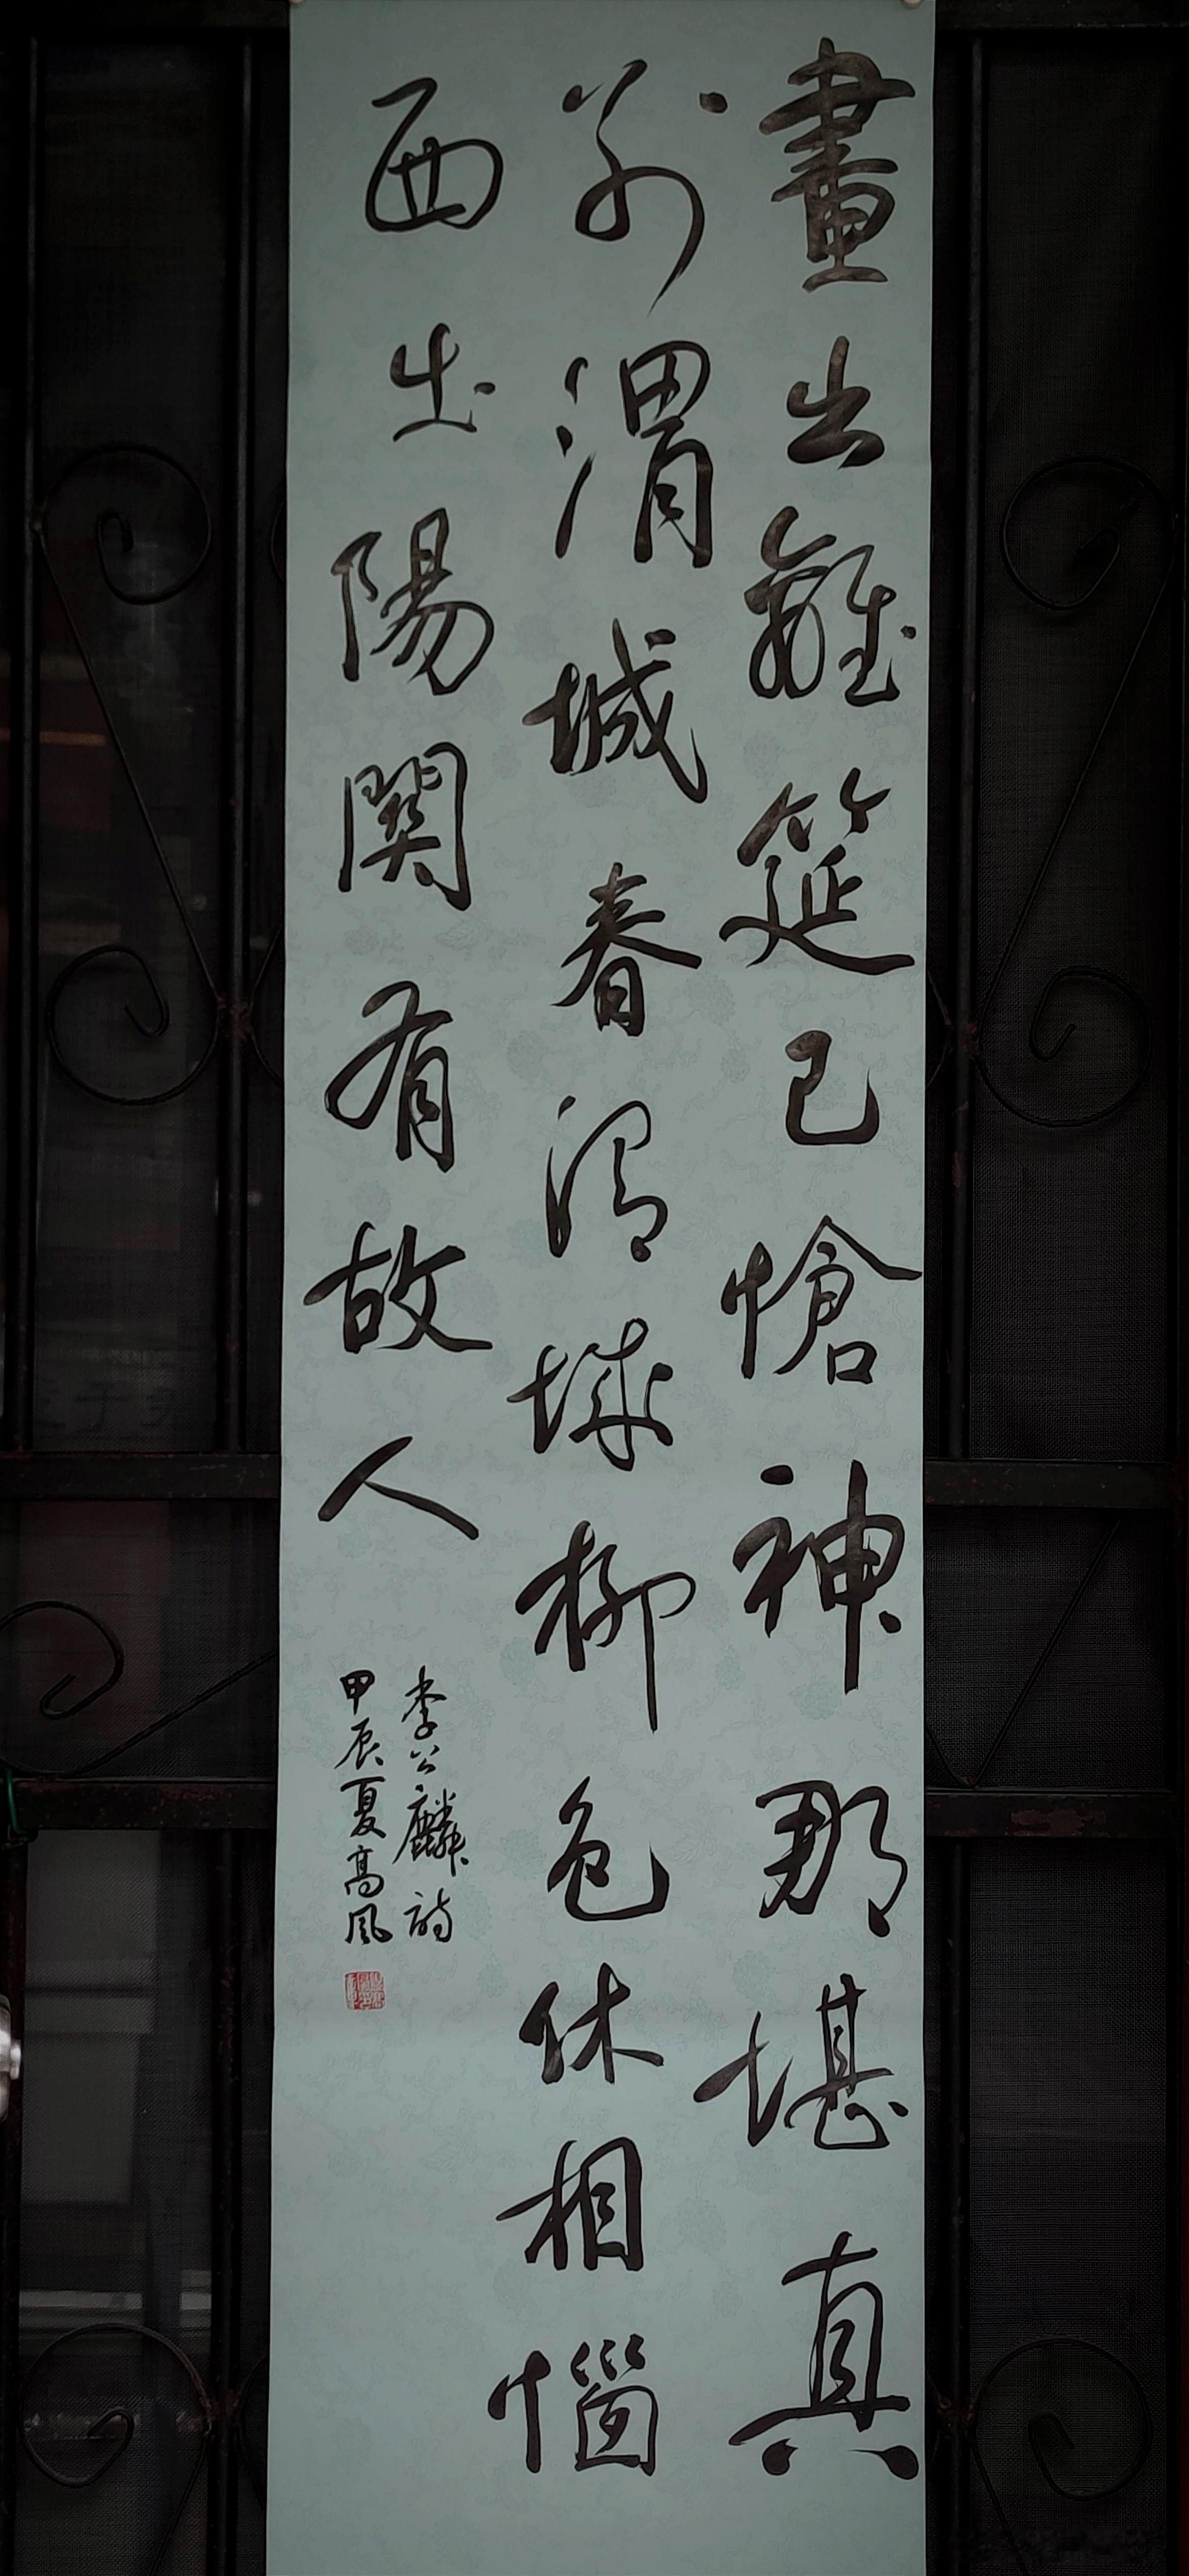 畫出離筵已愴神那堪真
別渭城春渭城柳色休相惱
西出陽關有故人
李公麟詩
甲辰夏高風